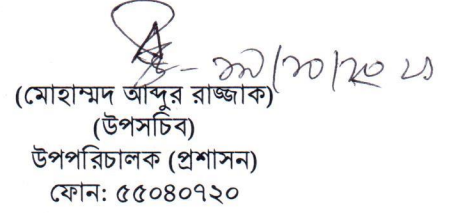 (মোহাম্মদ আব্দুর রাজ্জাক)
(উপসচিব)
উপপরিচালক (প্রশাসন)
ফোন: ৫৫০৪০৭২০